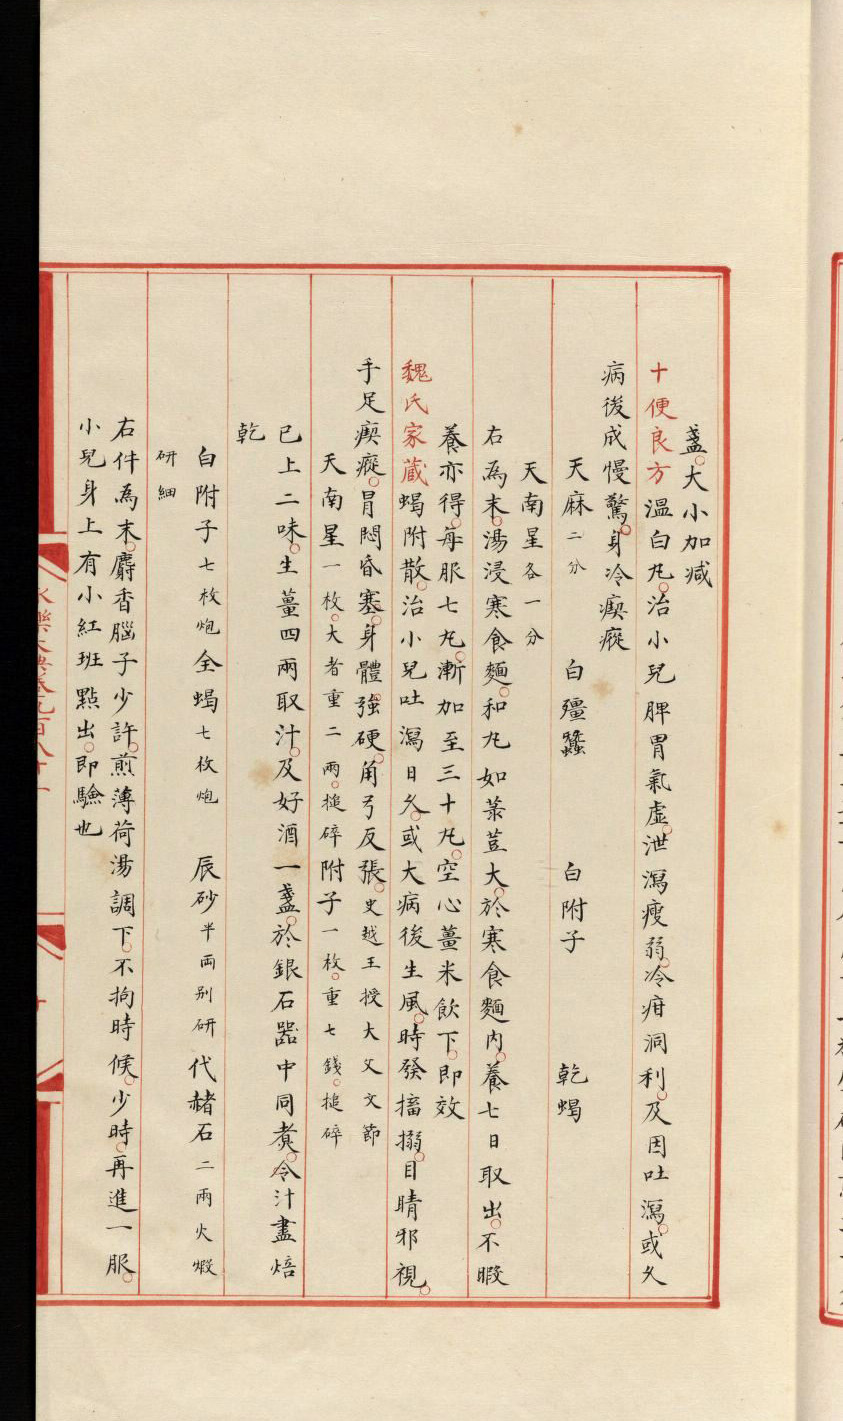 盞。大小加减
十便良方溫白丸。治小兒脾胃氣虛。泄瀉瘦弱。冷疳洞利。及因吐瀉。或久
病後成慢驚。身冷瘈瘲
天麻二分 白殭蠶 白附子 乾蝎
天南星各一分
右為末。湯浸寒食麵。和丸如菉荳大。於寒食麵內。養七日取出。不暇
養亦得。每服七丸。漸加至三十丸。空心薑米飲下。即效
魏氏家藏蝎附散。治小兒吐瀉日久。或大病後生風。時發搐搦。目睛邪視。
手足瘈瘲。胃悶昏塞。身體強硬。角弓反張。史越王授大父文節
天南星一枚。大者重二兩。搥碎附子一枚。重七錢。搥碎
已上二味。生薑四兩取汁。及好酒一盞。於銀石器中同煑。令汁盡焙
乾
白附子七枚炮全蝎七枚炮 辰砂半両别研代赭石二兩火煅
研細
右件為末。麝香腦子少許。煎薄荷湯調下。不拘時候。少時。再進一服。
小兒身上有小紅班點出。即驗也
永樂大典卷九百八十一